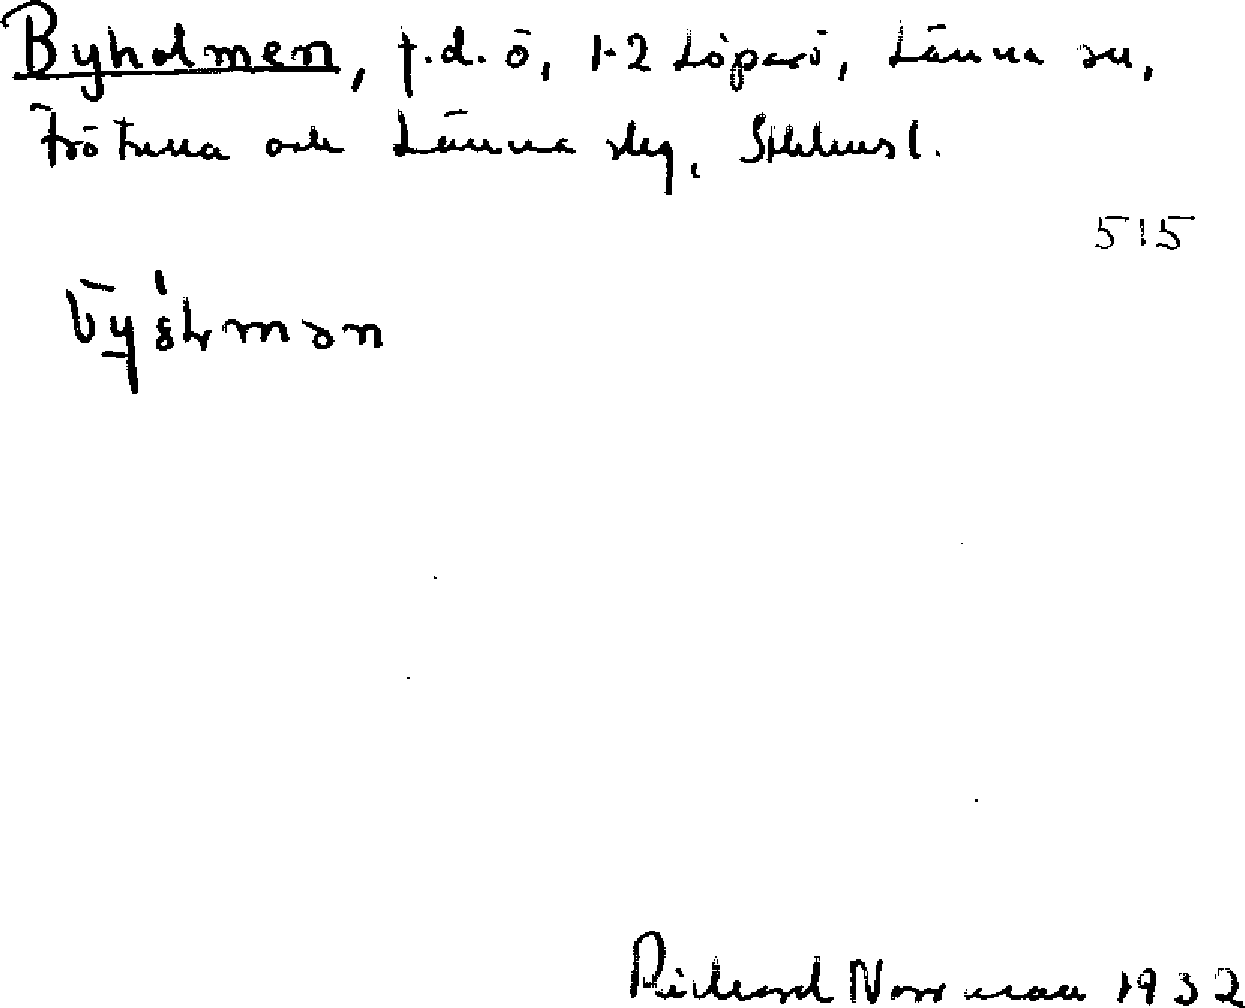 Byholmen, f.d. ö, 1-2 Löparö, Länna sn,
Frötuna och Länna slg, Sthlmsl.
515
Rickard Norrman 1932